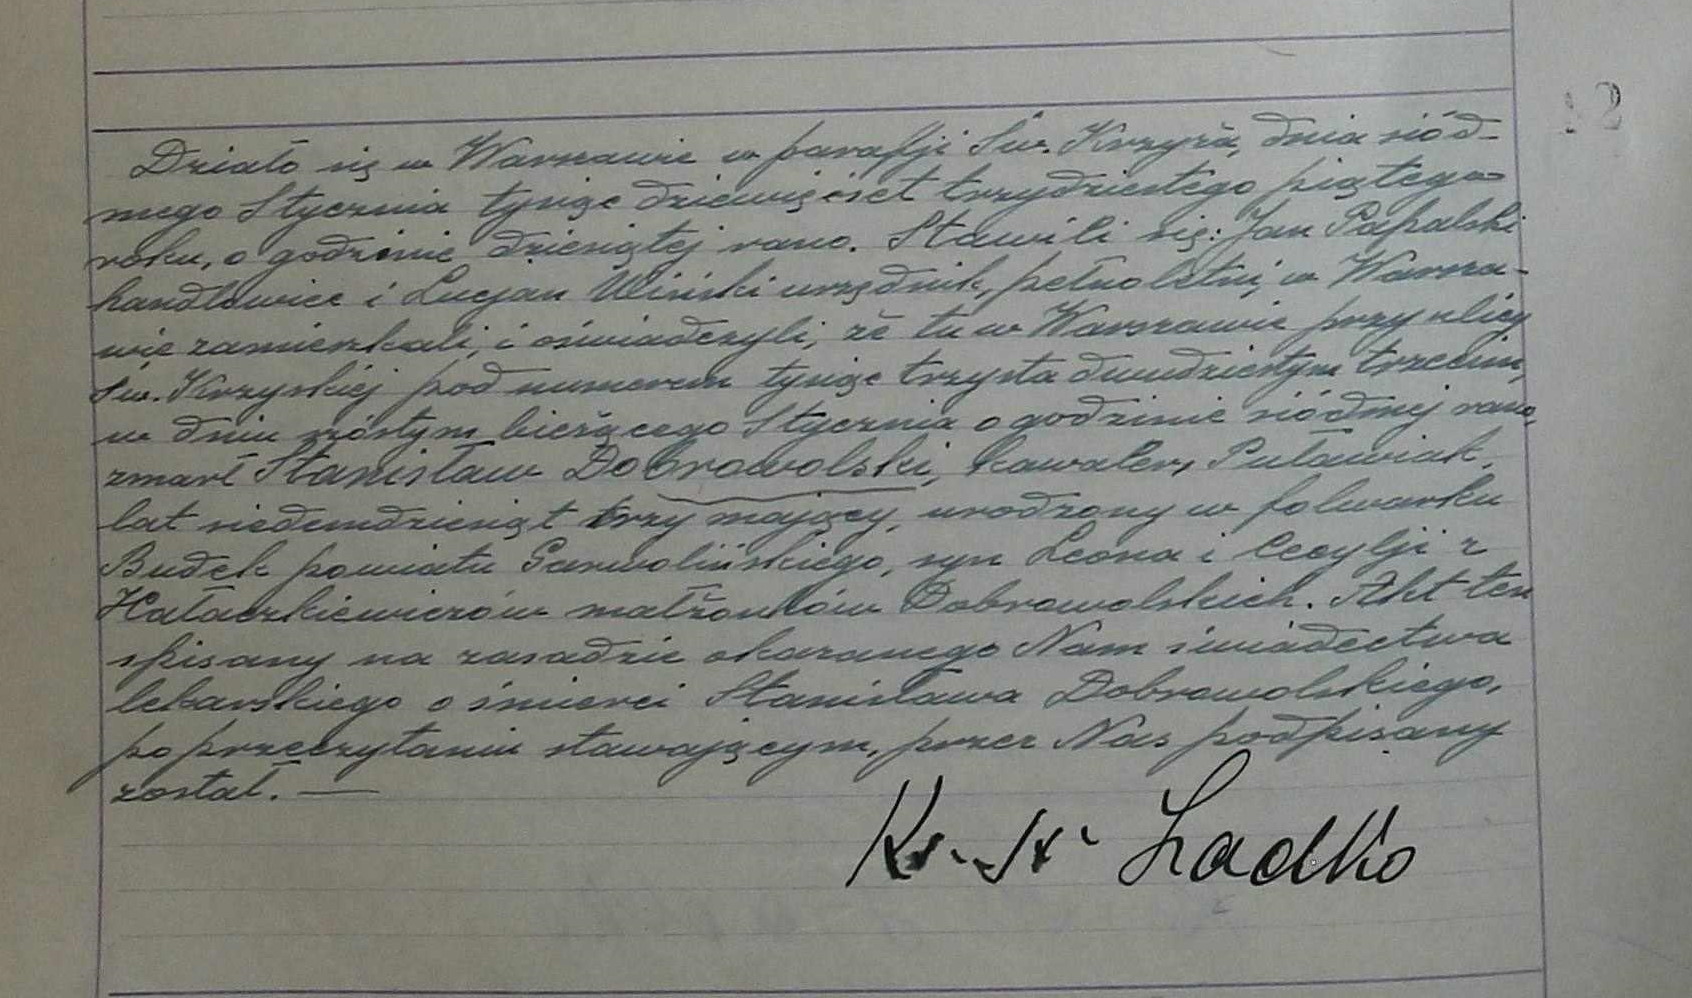 Działo się w Warszawie w parafji Św. Krzyża, dnia siód-
mego Stycznia tysiąc dziewięćset trzydziestego piątego
roku, o godzinie dziesiątej rano. Stawili się: Jan Papalski
handlowiec i Lucjan Wiński urzędnik, pełnoletni, w Warsza-
wie zamieszkali, i oświadczyli, że tu w Warszawie przy ulicy
Św. Krzyskiej pod numerem tysiąc trzysta dwudziestym trzecim,
w dniu szóstym bieżącego Stycznia o godzinie siódmej rano,
zmarł Stanisław Dobrowolski, kawaler,
lat siedemdziesiąt trzy mający, urodzony w folwarku
Budek powiatu Garwolińskiego, syn Leona i Cecylji z
Hałaczkiewiczów małżonków Dobrowolskich. Akt ten
spisany na zasadzie okazanego Nam świadectwa
lekarskiego o śmierci Stanisława Dobrowolskiego,
po przeczytaniu stawającym, przez Nas podpisany
został. —
Ks. St. Ładko